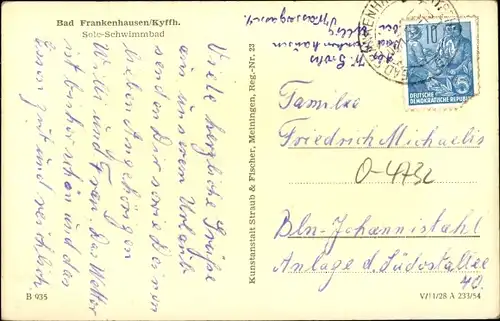 Bad Frankenhausen/Kyffh.
Sole-Schwimmbad
Viele herzliche Grüße
aus unserem Urlaub
senden Dir sowie Deinen
lieben Angehörigen
Willi und Frau. Das Wetter
ist bisher schön und das
Essen gut und reichlich
B 935
Kunstanstalt Straub & Fischer, Meiningen, Reg.-Nr. 23
Bad
BAD FRANKENHAUSEN
DEUTSCHE
DEMOKRATISCHE REPUBLIK
Familie
Friedrich Michaelis
O-4732
Bln-Johannistahl
Anlage d. Südostallee
40.
V/11/28 A 233/54